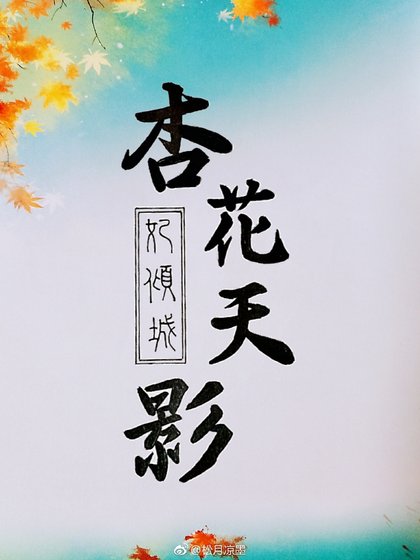 杏花天影
妃傾城
@松月凉墨